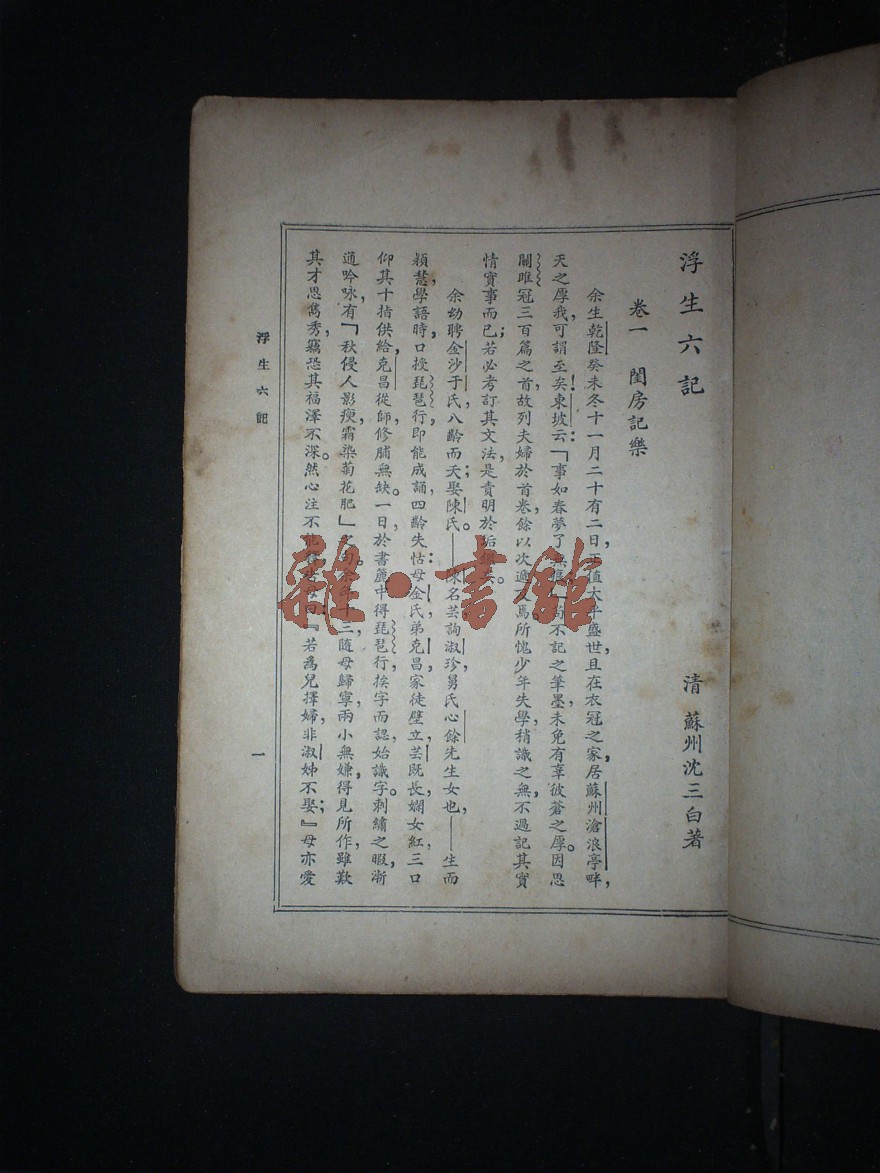 浮生六記
清 蘇州沈三白著
卷一 閨房記樂
余生乾隆癸未冬十一月二十有二日，正值太平盛世，且在衣冠之家，居蘇州滄浪亭畔，
天之厚我，可謂至矣！東坡云：「事如春夢了無痕」，苟不記之筆墨，未免有辜彼蒼之厚。因思
關雎冠三百篇之首，故列夫婦於首卷，餘以次遞及焉。所愧少年失學，稍識之無，不過記其實
情實事而已；若必考訂其文法，是責明於垢鑑矣。
余幼聘金沙于氏，八齡而夭；娶陳氏。——陳名芸，詢淑珍，舅氏心餘先生女也，——生而
穎慧，學語時，口授琵琶行，即能成誦，四齡失怙：母金氏，弟克昌，家徒壁立。芸既長，嫻女紅，三口
仰其十指供給，克昌從師，修脯無缺。一日，於書簏中得琵琶行，挨字而認，始識字。刺繡之暇，漸
通吟咏，有「秋侵人影瘦，霜染菊花肥」之句。余年十三，隨母歸寧，兩小無嫌，得見所作，雖歎
其才思雋秀，竊恐其福澤不深。然心注不能釋，告母曰：『若爲兒擇婦，非淑姊不娶；』母亦愛
浮生六記
一
雜·書館